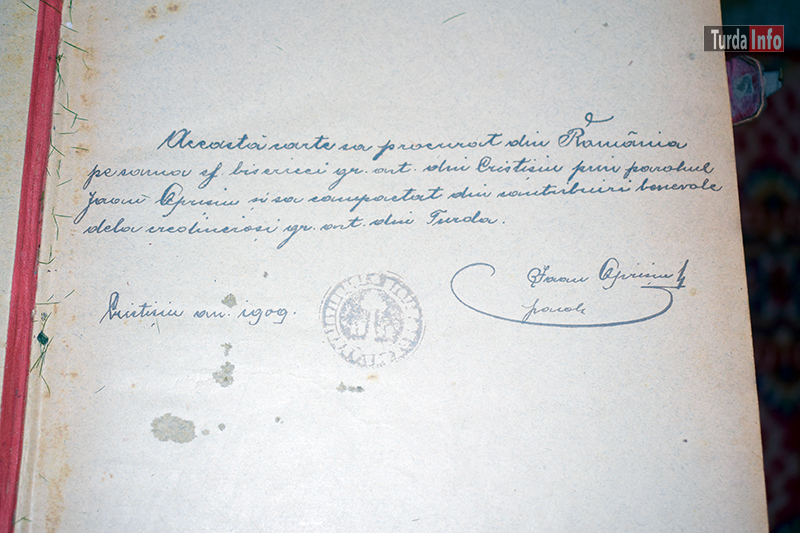 Turda Info
Această carte sa procurat din România
pe sama sf. biserici gr. ort. din Cristișiu prin parohul
Ioan Oprișiu și sa compactat din contribuiri benevole
dela credincioși gr. ort. din Turda.
Ioan Oprișiu
paroh
Cristișiu an. 1909.